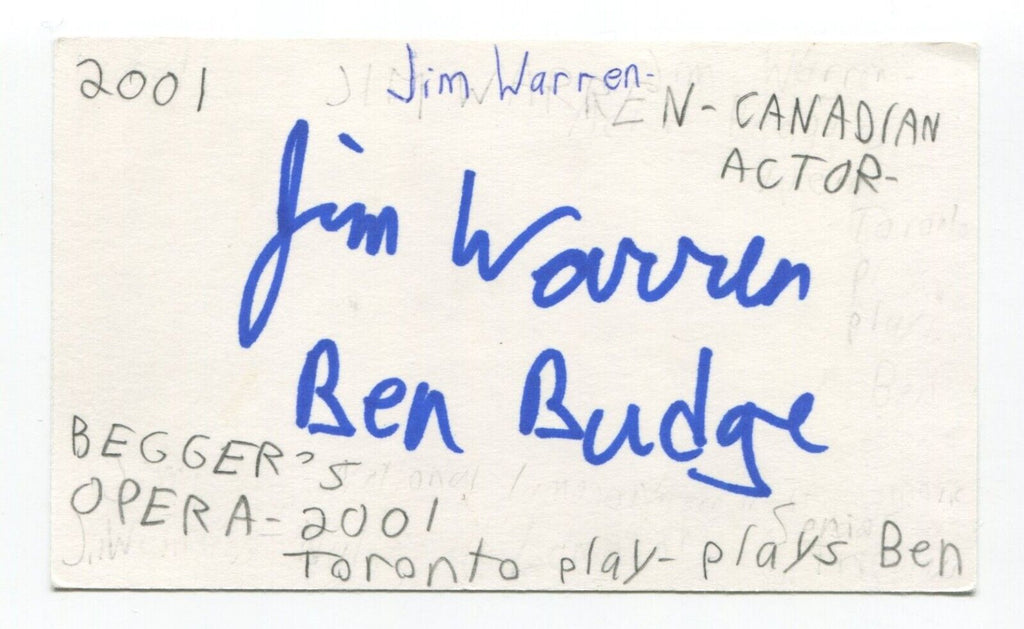 2001
Jim Warren-
JIM WARREN - CANADIAN
ACTOR-
Jim Warren
Ben Budge
BEGGER'S
OPERA- 2001
Toronto play- plays Ben